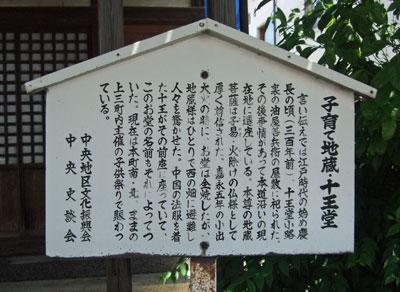 子育て地蔵・十王堂
言い伝えでは江戸時代の始め慶
長の頃(三百年前)、十王堂小路
裏の油屋善兵衛の屋敷に祀られた。
その後事情があって本道沿いの現
在地に遷座している。本尊の地蔵
菩薩は子易、火除けの仏様として
厚く尊信された。嘉永五年の小出
大火の時に、お堂は全焼したが、
地蔵様はひとりで西の畑に避難し
人々を驚かせた。中国の法服を着
た十王がその前座に座っていて、
このお堂の名前もそれによってつ
いた。現在は本町南・北、
上三町内主催の子供祭りで賑わっ
ている。
中央地区文化振興会
中央史談会